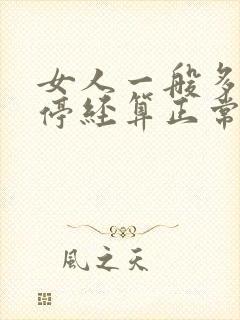 女人一般多
停经算正常
風之天